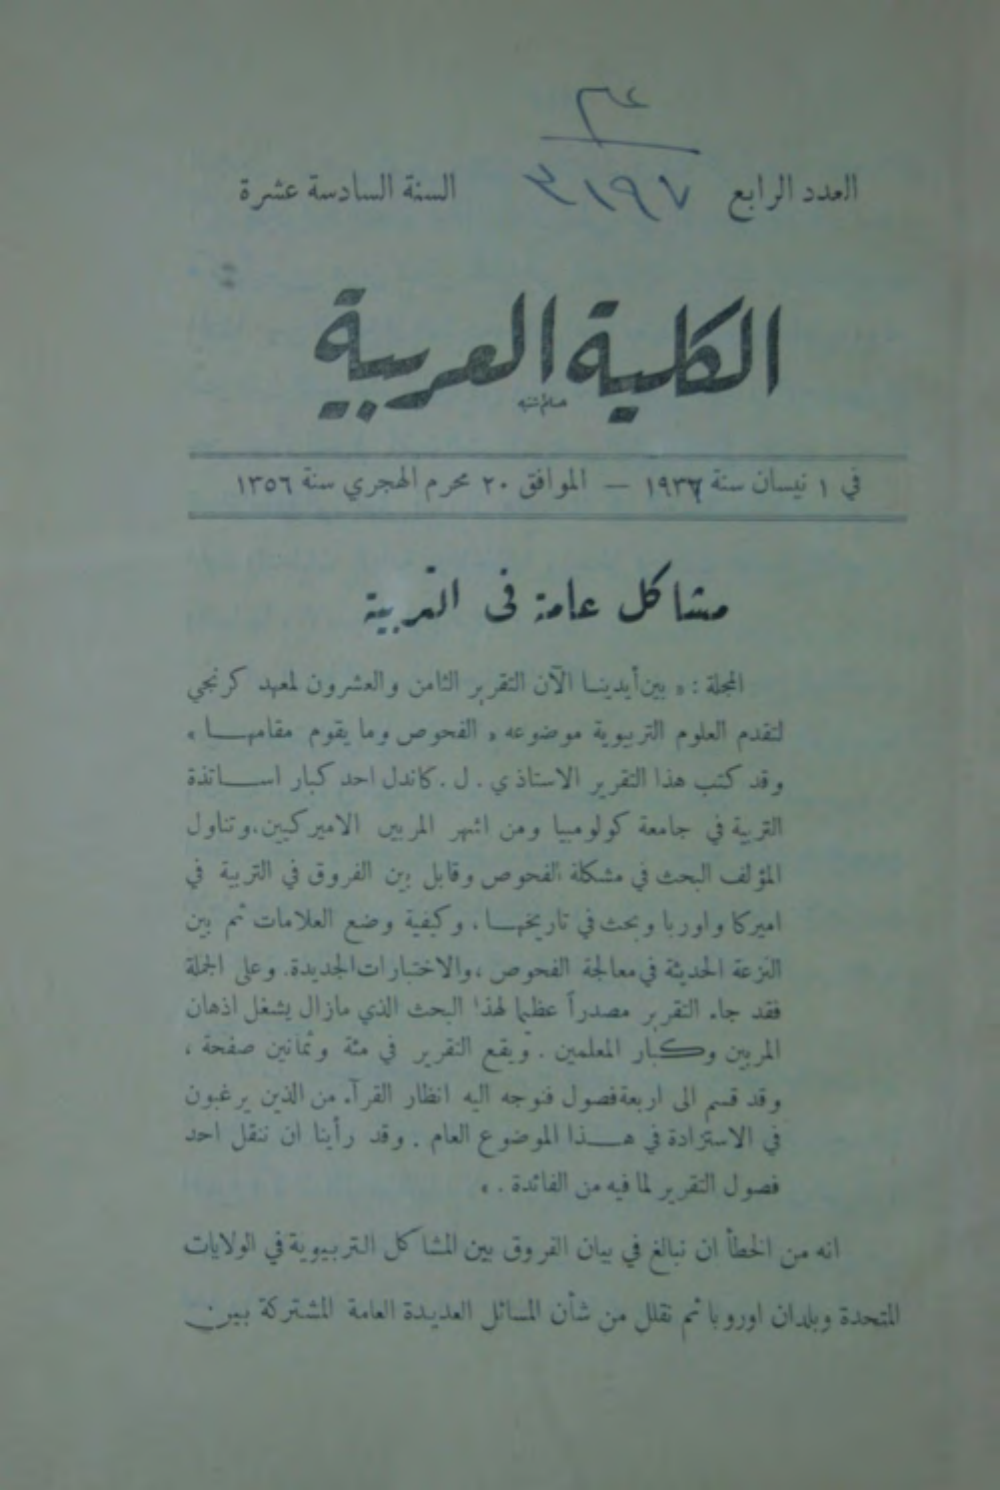 العدد الرابع السنة السادسة عشرة
الكلية العربية
في ١ نيسان سنة ١٩٣٧ — الموافق ٢٠ محرم الهجري سنة ١٣٥٦
مشاكل عامة في التربية
المجلة : « بين أيدينا الآن التقرير الثامن والعشرون لمعهد كرنجي
لتقدم العلوم التربوية موضوعه « الفحوص وما يقوم مقامها »
وقد كتب هذا التقرير الاستاذ ي . ل . كاندل احد كبار اساتذة
التربية في جامعة كولومبيا ومن اشهر المربين الاميركيين، وتناول
المؤلف البحث في مشكلة الفحوص وقابل بين الفروق في التربية في
اميركا واوربا وبحث في تاريخها ، وكيفية وضع العلامات ثم بين
النزعة الحديثة في معالجة الفحوص ، والاختبارات الجديدة. وعلى الجملة
فقد جاء التقرير مصدراً عظيما لهذا البحث الذي مازال يشغل اذهان
المربين وكبار المعلمين . ويقع التقرير في مئة وثمانين صفحة ،
وقد قسم الى اربعة فصول فنوجه اليه انظار القرآء من الذين يرغبون
في الاستزادة في هذا الموضوع العام . وقد رأينا ان ننقل احد
فصول التقرير لما فيه من الفائدة . »
انه من الخطأ ان نبالغ في بيان الفروق بين المشاكل التربيوية في الولايات
المتحدة وبلدان اوروبا ثم نقلل من شأن المسائل العديدة العامة المشتركة بين